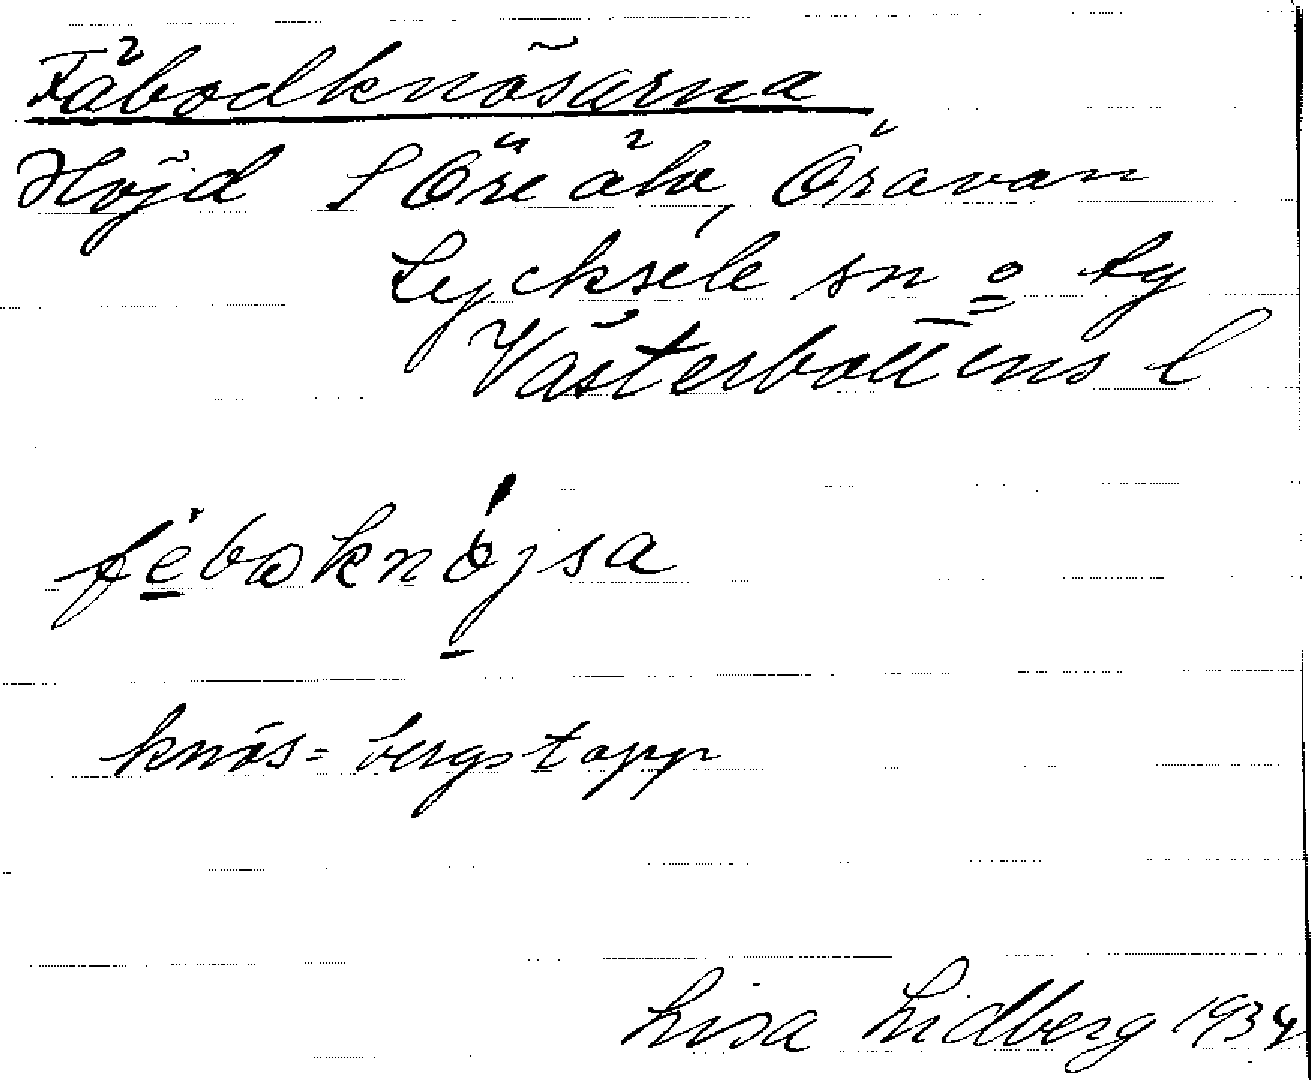 Fäbodknösarna
Höjd S Öre älv, Öravan
Lycksele sn o tg
Västerbottens l
fèboknöjsa
knös = bergstopp
Lisa Lidberg 1934